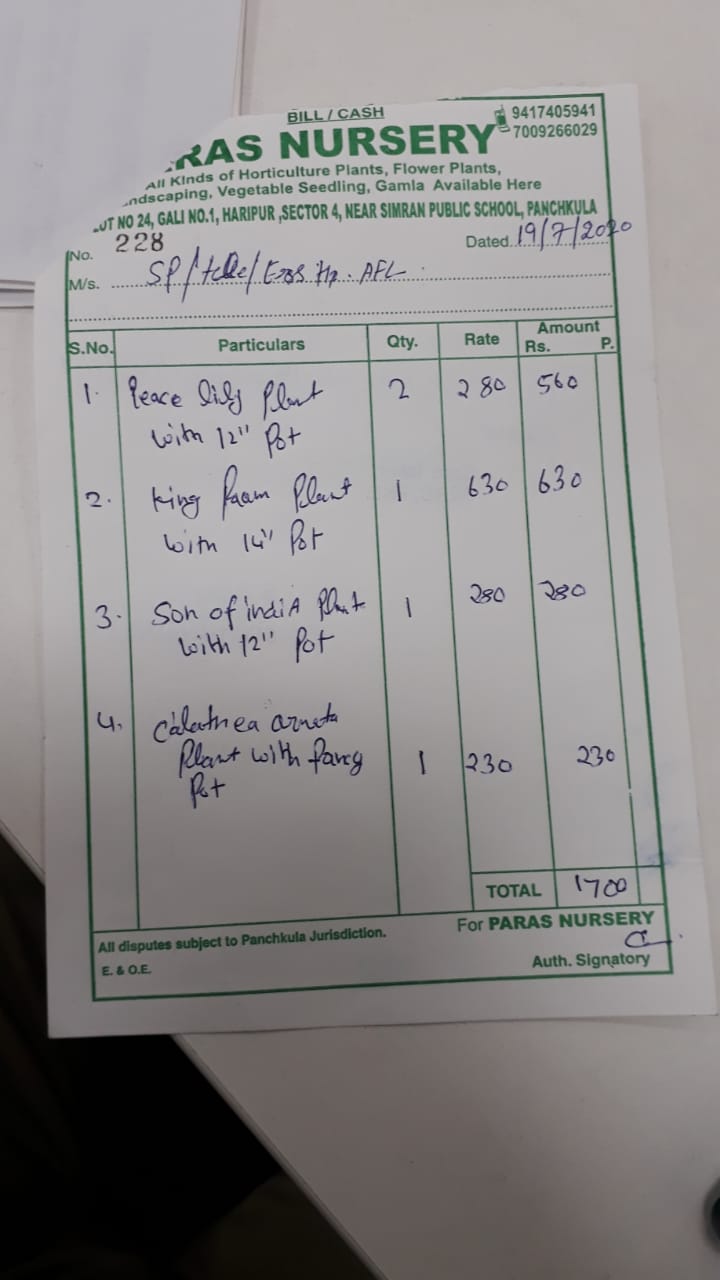 BILL / CASH
RAS NURSERY
9417405941
7009266029
All Kinds of Horticulture Plants, Flower Plants,
ndscaping, Vegetable Seedling, Gamla Available Here
OT NO 24, GALI NO.1, HARIPUR ,SECTOR 4, NEAR SIMRAN PUBLIC SCHOOL, PANCHKULA
No. 228 Dated 19/7/2020
M/s. SP/ AFL
S.No. Particulars Qty. Rate Amount
Rs. P.
1. Peace lily Plant 2 280 560
with 12" Pot
2. King Paam Plant 1 630 630
with 14" Pot
3. Son of indiA Plant 1 280 280
with 12" Pot
4. Calathea
Plant with fancy 1 230 230
Pot
TOTAL 1700
All disputes subject to Panchkula Jurisdiction. For PARAS NURSERY
E. & O.E. Auth. Signatory